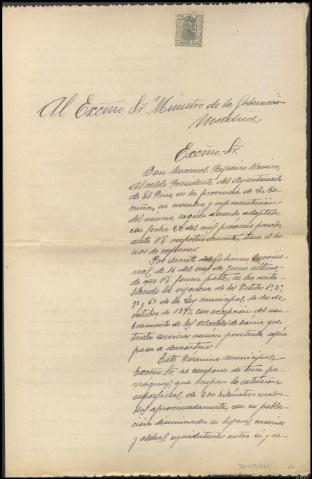 Al Excmo Sr. Ministro de la Gobernación
Madrid
Excmo. Sr.
Don Manuel
Alcalde Presidente del Ayuntamiento
de El Pino, en la provincia de La Co-
ruña, en nombre y representación
del mismo, según acuerdo adoptado
en fecha 28 del mes próximo pasado
ante V.E. respetuosamente, tiene el ho-
nor de exponer:
Por decreto del Gobierno
de 16 del mes de Junio último
de que V.E. forma parte, se ha resta-
blecido la vigencia de los títulos 1º, 2º,
de la ley municipal, de dos de
Octubre de 1877, con excepción del nom-
bramiento de los alcaldes de barrio que
servicios venían prestando, según
pasa a demostrar.
Este término municipal,
Excmo Sr, se compone de trece pa-
rroquias, que ocupan la extensión
superficial, de kilómetros cuadra-
dos aproximadamente, con su pobla-
ción diseminada en lugares, caseríos
y aldeas, equidistantes entre sí y se-